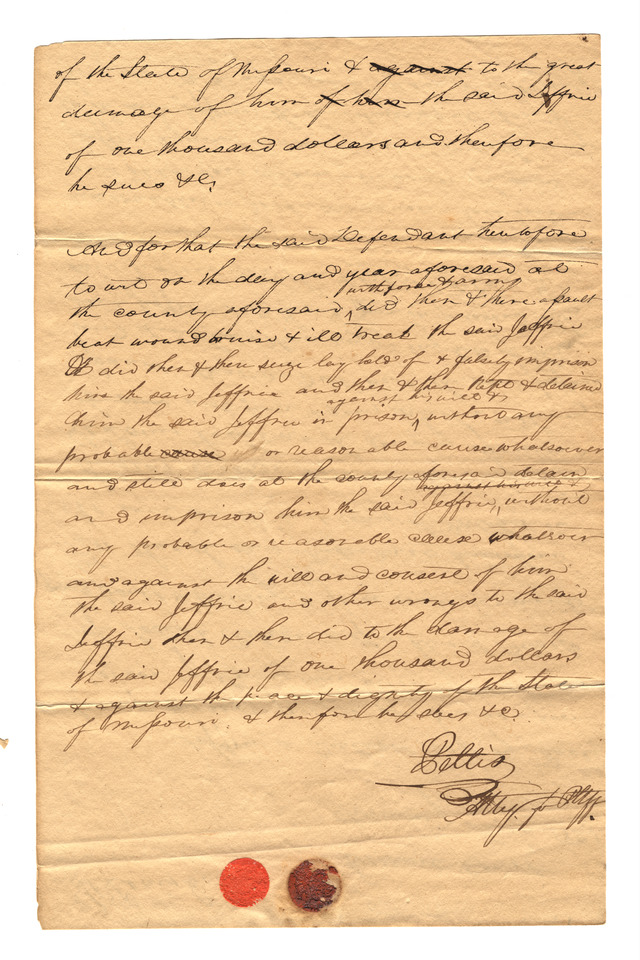 of the State of Missouri & against to the great
damage of him of his the said Jeffrie
of one thousand dollars and therefore
he sues &c.
And for that the said Defendant heretofore
to wit on the day and year aforesaid at
the county aforesaid, with force & arms did then & there assault
beat wound bruise & ill treat the said Jeffrie
& did then & there seize lay hold of & falsely imprison
him the said Jeffrie and then & there kept & detained
him the said Jeffrie in prison, against his will & without any
probable cause or reasonable cause whatsoever
and still does at the county aforesaid detain
and imprison him the said Jeffrie, against his will & without
any probable or reasonable cause whatsoever
and against the will and consent of him
the said Jeffrie and other wrongs to the said
Jeffrie then & there did to the damage of
the said Jeffrie of one thousand dollars
& against the peace & dignity of the State
of Missouri. & therefore he sues &c.
Pettis
Atty. for Pltff.